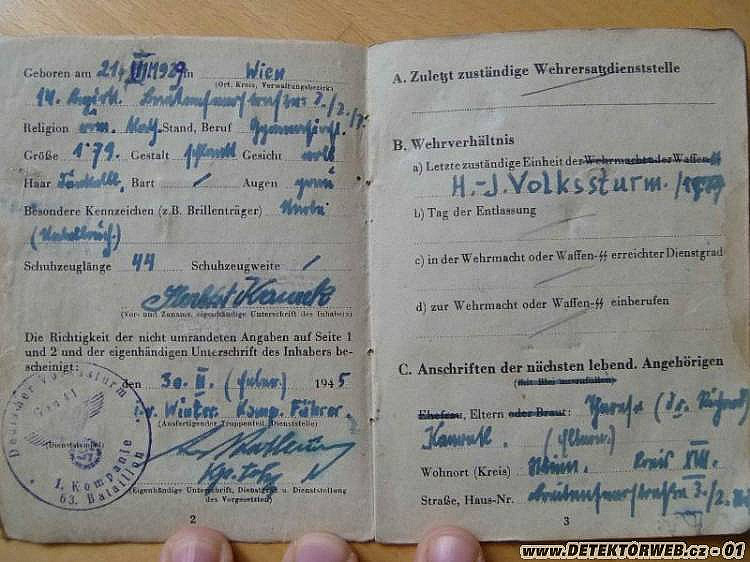 Geboren am 21. III 1929 in Wien
(Ort, Kreis, Verwaltungsbezirk)
14. Bezirk.
Religion röm. Kath. Stand, Beruf
Größe 1'79. Gestalt schlank Gesicht oval
Haar Bart / Augen grün
Besondere Kennzeichen (z.B. Brillenträger) Narbe
Schuhzeuglänge 44 Schuhzeugweite /
(Vor- und Zuname, eigenhändige Unterschrift des Inhabers)
Die Richtigkeit der nicht umrandeten Angaben auf Seite 1
und 2 und der eigenhändigen Unterschrift des Inhabers be-
scheinigt:
den 30. II. 1945
Winter Komp. Führer.
(Ausfertigender Truppenteil, Dienststelle)
(Dienststempel)
Deutscher Volkssturm
1. Kompanie
63. Bataillon
(Eigenhändige Unterschrift, Dienstgrad u. Dienststellung
des Vorgesetzten)
2
A. Zuletzt zuständige Wehrersatzdienststelle
B. Wehrverhältnis
a) Letzte zuständige Einheit der Wehrmacht oder Waffen-SS
H.-J. Volkssturm.
b) Tag der Entlassung
c) in der Wehrmacht oder Waffen-SS erreichter Dienstgrad
d) zur Wehrmacht oder Waffen-SS einberufen
C. Anschriften der nächsten lebend. Angehörigen
(mit Blei auszufüllen)
Ehefrau, Eltern oder Braut:
(Eltern).
Wohnort (Kreis) Wien. Kreis
Straße, Haus-Nr.
3
www.DETEKTORWEB.cz - 01